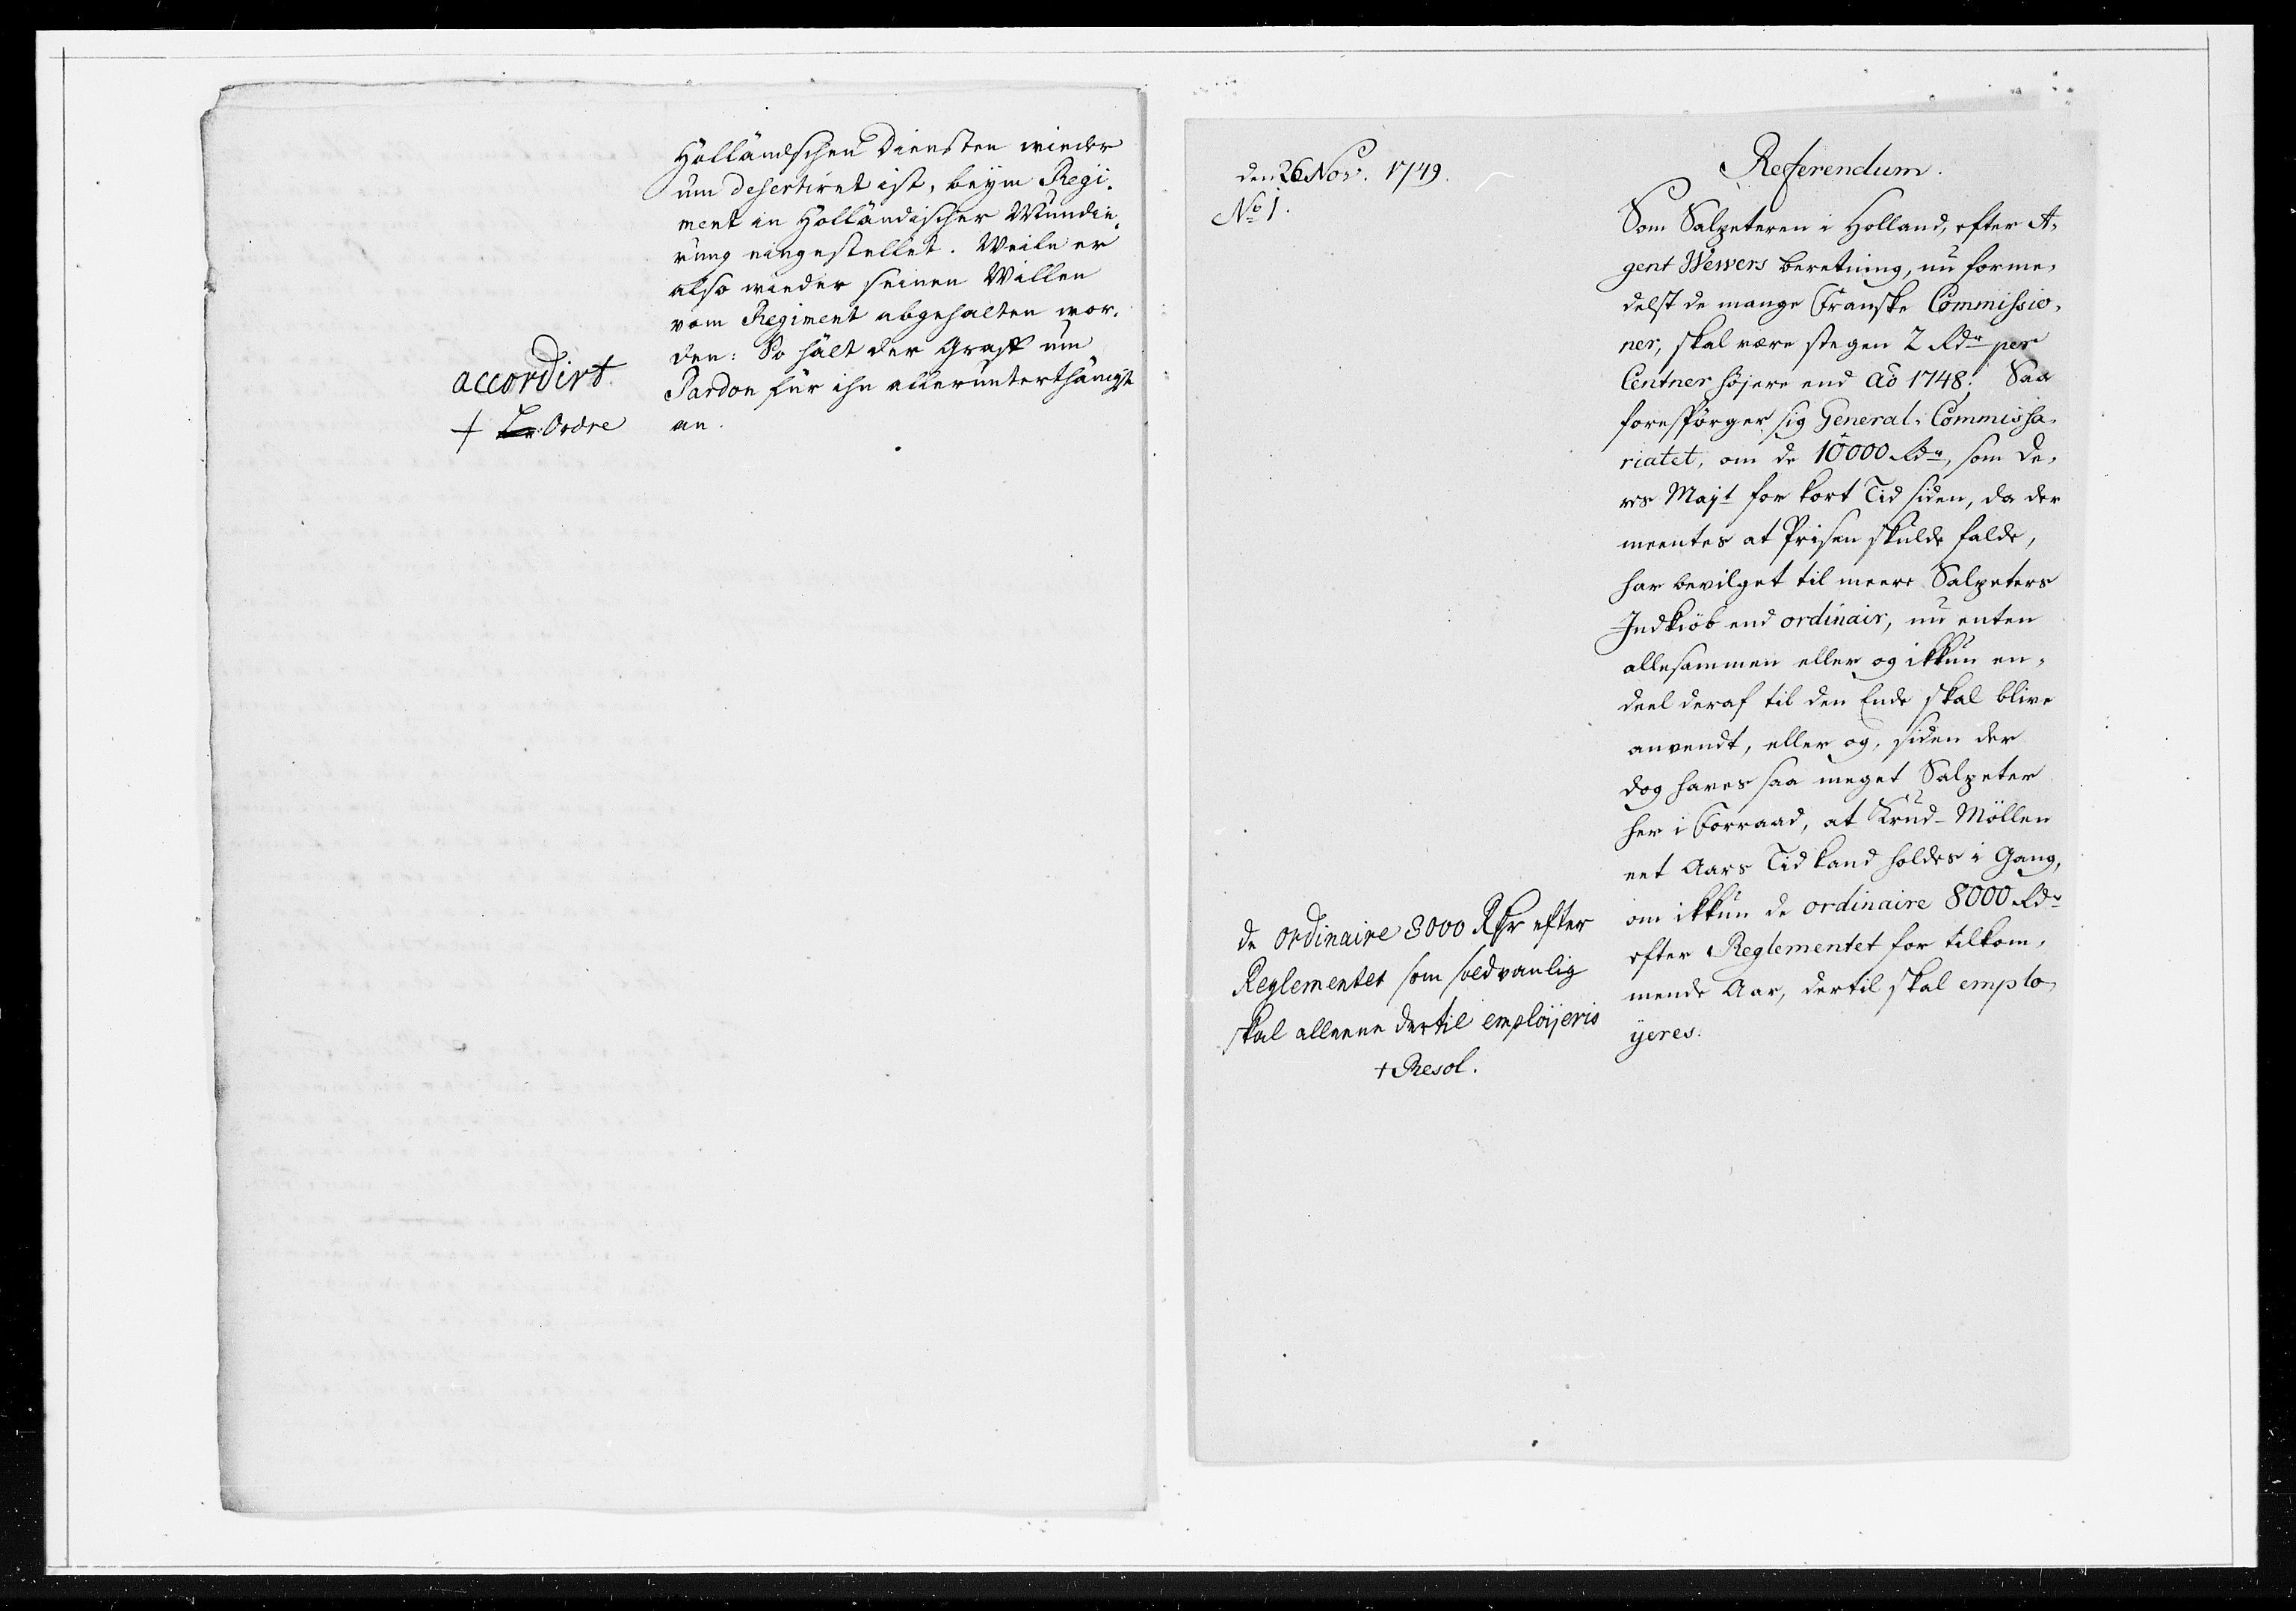 Holländschen Diensten wieder
um desertiret ist, beym Regi-
ment in Holländischer Mundie-
rung eingestellet. Weile er
also wieder seinen Willen
vom Regiment abgehalten wor-
den: So hält der Graff um
Pardon für ihn allerunterthänigst
an.
accordirt
+ Ordre
den 26 Nov. 1749.
No 1.
Referendum.
Som Salpeteren i Holland, efter A-
gent Wewers beretning, nu forme-
delst de mange Franske Commissio-
ner, skal være stegen 2 Rdr per
Centner højere end Ao 1748. Saa
forespörger sig General-Commissa-
riatet, om de 10000 Rdr, som De-
res Majt for kort Tid siden, da der
meentes at Prisen skulde falde,
har bevilget til meere Salpeters
Indkiöb end ordinair, nu enten
allesammen eller og ikkun en-
deel deraf til den Ende skal blive
anvendt, eller og, siden der
dog haves saa meget Salpeter
her i Forraad, at Krud-Möllen
eet Aars Tid kand holdes i Gang,
om ikkun de ordinaire 8000 Rdr
efter Reglementet for tilkom-
mende Aar, dertil skal emplo-
yeres.
de ordinaire 8000 Rdr efter
Reglementet som sædvanlig
skal alleene dertil employeris
+ Resol.